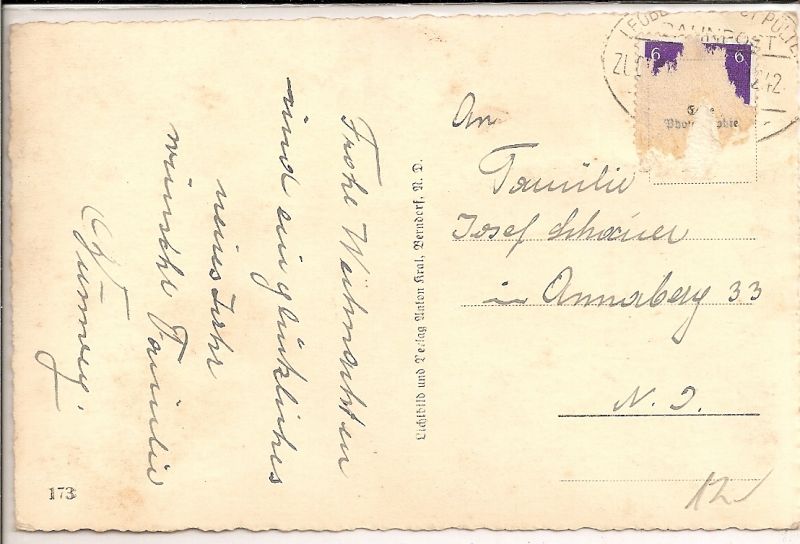 Frohe Weihnachten
und ein glückliches
neues Jahr
wünscht Familie
Lichtbild und Verlag Anton Kral, Berndorf, N. D.
173
BAHNPOST
6 6
An
Familie
Josef Schauer
in Annaberg 33
N. D.
12